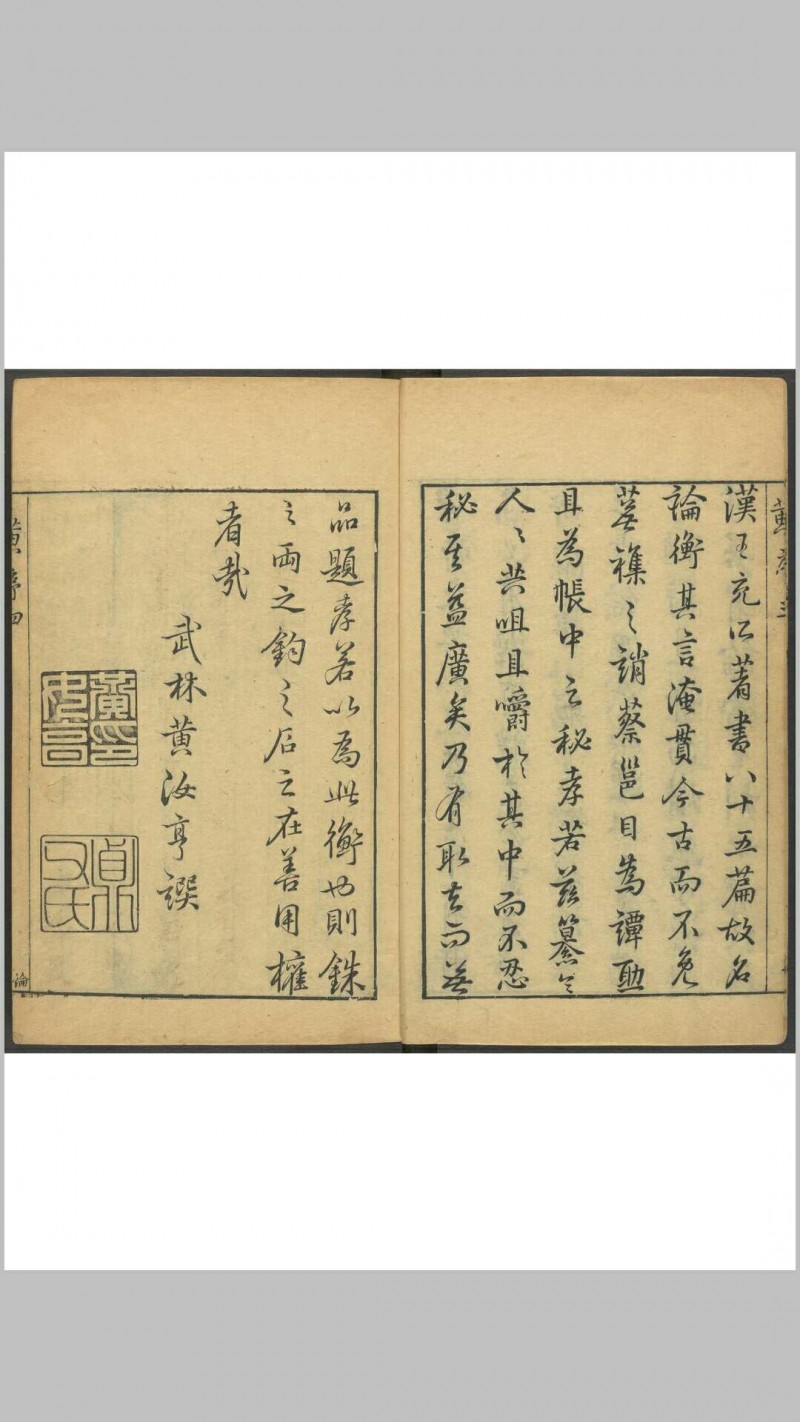 黄序三
漢王充所著書八十五篇故名
論衡其言淹貫今古而不免
蕪襍之誚蔡邕目為譚助
且為帳中之秘孝若茲纂令
人〻共咀且嚼於其中而不忍
秘其益廣矣乃有取去而無
品題孝若以為此衡也則銖
之兩之鈞之石之在善用權
者哉
武林黄汝亨譔
黄序四
論